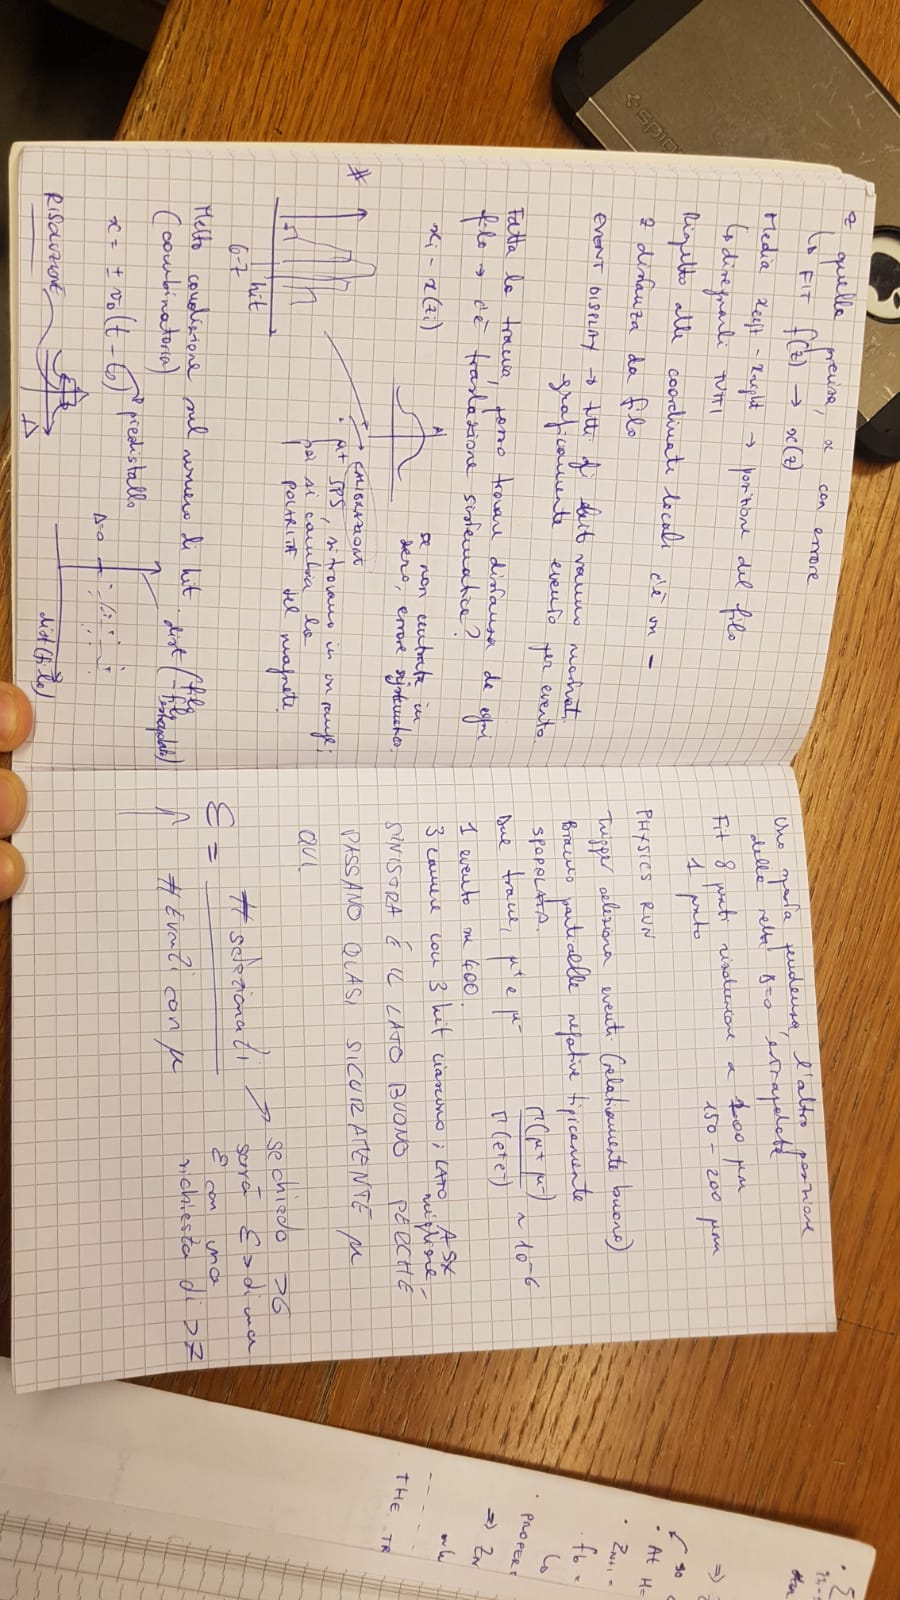 z quella precisa, x con errore
↳ FIT f(z) → x(z)
Media xleft - xright → posizione del filo
↳ disegnarli TUTTI
Rigetto alle coordinate locali c'è un -
z distanza da filo
EVENT DISPLAY → tutti gli hit vanno mostrati
graficamente evento per evento.
Fatta la traccia, posso trovare distanza da ogni
filo → c'è traslazione sistematica?
xi - x(zi)
se non centrata in
zero, errore sistematico
CALIBRAZIONE
μ+ SPS, si trovano in un range;
poi si cambia la
POLARITÀ del magnete.
hit
6-7
Metto condizione sul numero di hit.
(combinatoria)
dist (filo - filo estrapolato)
x = ± v0 (t - t0) piedistallo
Δ=0
RISOLUZIONE
Δ
dist (filo)
Uno sarà pendenza, l'altro posizione
della retta estrapolata
Fit 8 punti risoluzione a 100 μm
1 punto 150 - 200 μm
PHYSICS RUN
Trigger seleziona eventi (relativamente buono)
Braccio particelle negative tipicamente
SPOPOLATO.
Due tracce, μ+ e μ-
Γ(μ+ μ-)
Γ(e+e-)
~ 10-6
1 evento su 400.
3 camere con 3 hit ciascuno; LATO A SX
migliore
SINISTRA È IL LATO BUONO PERCHÉ
PASSANO QUASI SICURAMENTE μ
QUI.
ε = # selezionati
# Eventi con μ
se chiedo >6
sarà ε > di una
ε con una
richiesta di >7
At H=
ZN+1 =
PROPER
⇒ ZN
THE TR